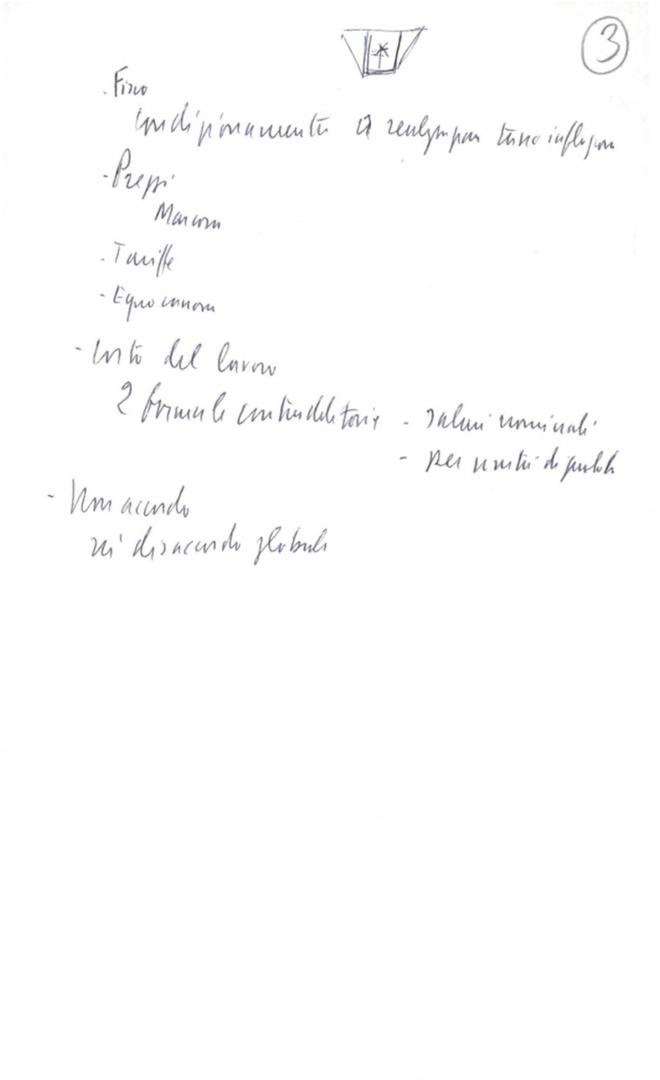 3
. Fisco
condizionamento a realizzazion tasso inflazion
- Prezzi
. Tariffe
- Equo canone
- Costo del lavoro
2 formule contraddittorie - salari nominali
- per unità di prodotto
- Non accordo
né disaccordo globale